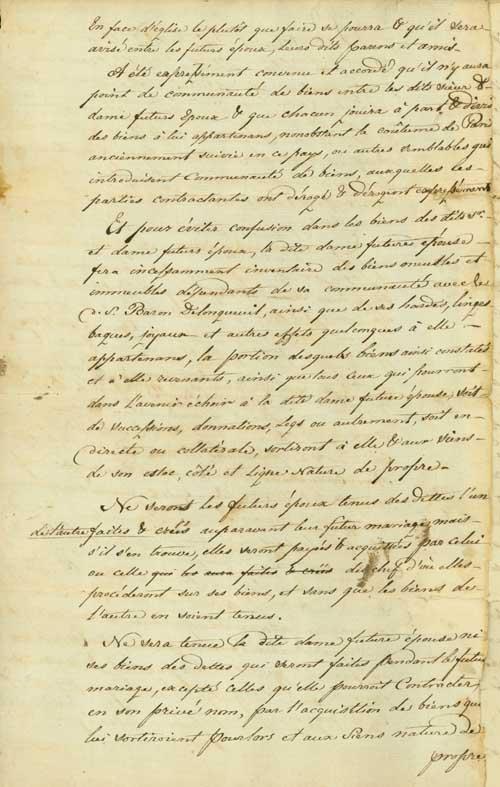 En face d'église le plutôt que faire se pourra & qu'il sera
avisé entre les futurs époux, leurs dits parens et amis
A été expressement convenu et accordé qu'il n'y aura
point de communauté de biens entre les dits sieur &
dame futurs Epoux & que chacun jouira à part & divis
des biens à lui appartenans, nonobstant la coûtume de Paris
anciennement suivie en ce pays, ou autres semblables qui
introduisent Communauté de biens, auxquelles les
parties contractantes ont dérogé & dérogent expressément
Et pour éviter confusion dans les biens des dits Sr.
et dame futurs époux, la dite dame future épouse
fera incessamment inventaire des biens meubles et
immeubles dépendants de sa communauté avec le
d. S. Baron Delongueuil, ainsi que de ses hardes, linges
bagues, joyaux et autres effets quelconques à elle
appartenans, la portion desquels biens ainsi constatés
et à elle revenants, ainsi que tous ceux qui pourront
dans l'avenir échoir à la dite dame future épouse, soit
de successions, donnations, Legs ou autrement, soit en
directe ou collatérale, sortiront à elle & aux siens
de son estoc, côté et Ligne Nature de propre
Ne seront les futurs époux tenus des dettes l'un
de l'autre faites & créés auparavant leur futur mariage, mais
s'il s'en trouve, elles seront payés & acquittées par celui
ou celle qui les aura faites & créés du chef d'où elles
procéderont sur ses biens, et sans que les biens de
l'autre en soient tenus.
Ne sera tenue la dite dame future épouse ni
ses biens des dettes qui seront faites pendant le futur
mariage, excepté celles qu'elle pourroit Contracter
en son privé nom, par l'acquisition de biens qui
lui sortiroient pour lors et aux Siens nature de
propre